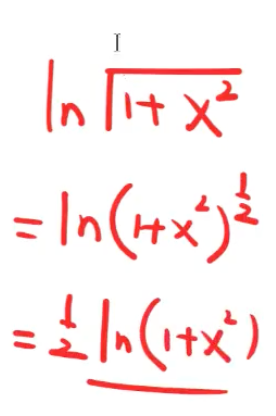 ln √(1+x²)
= ln(1+x²)^(1/2)
= 1/2 ln(1+x²)